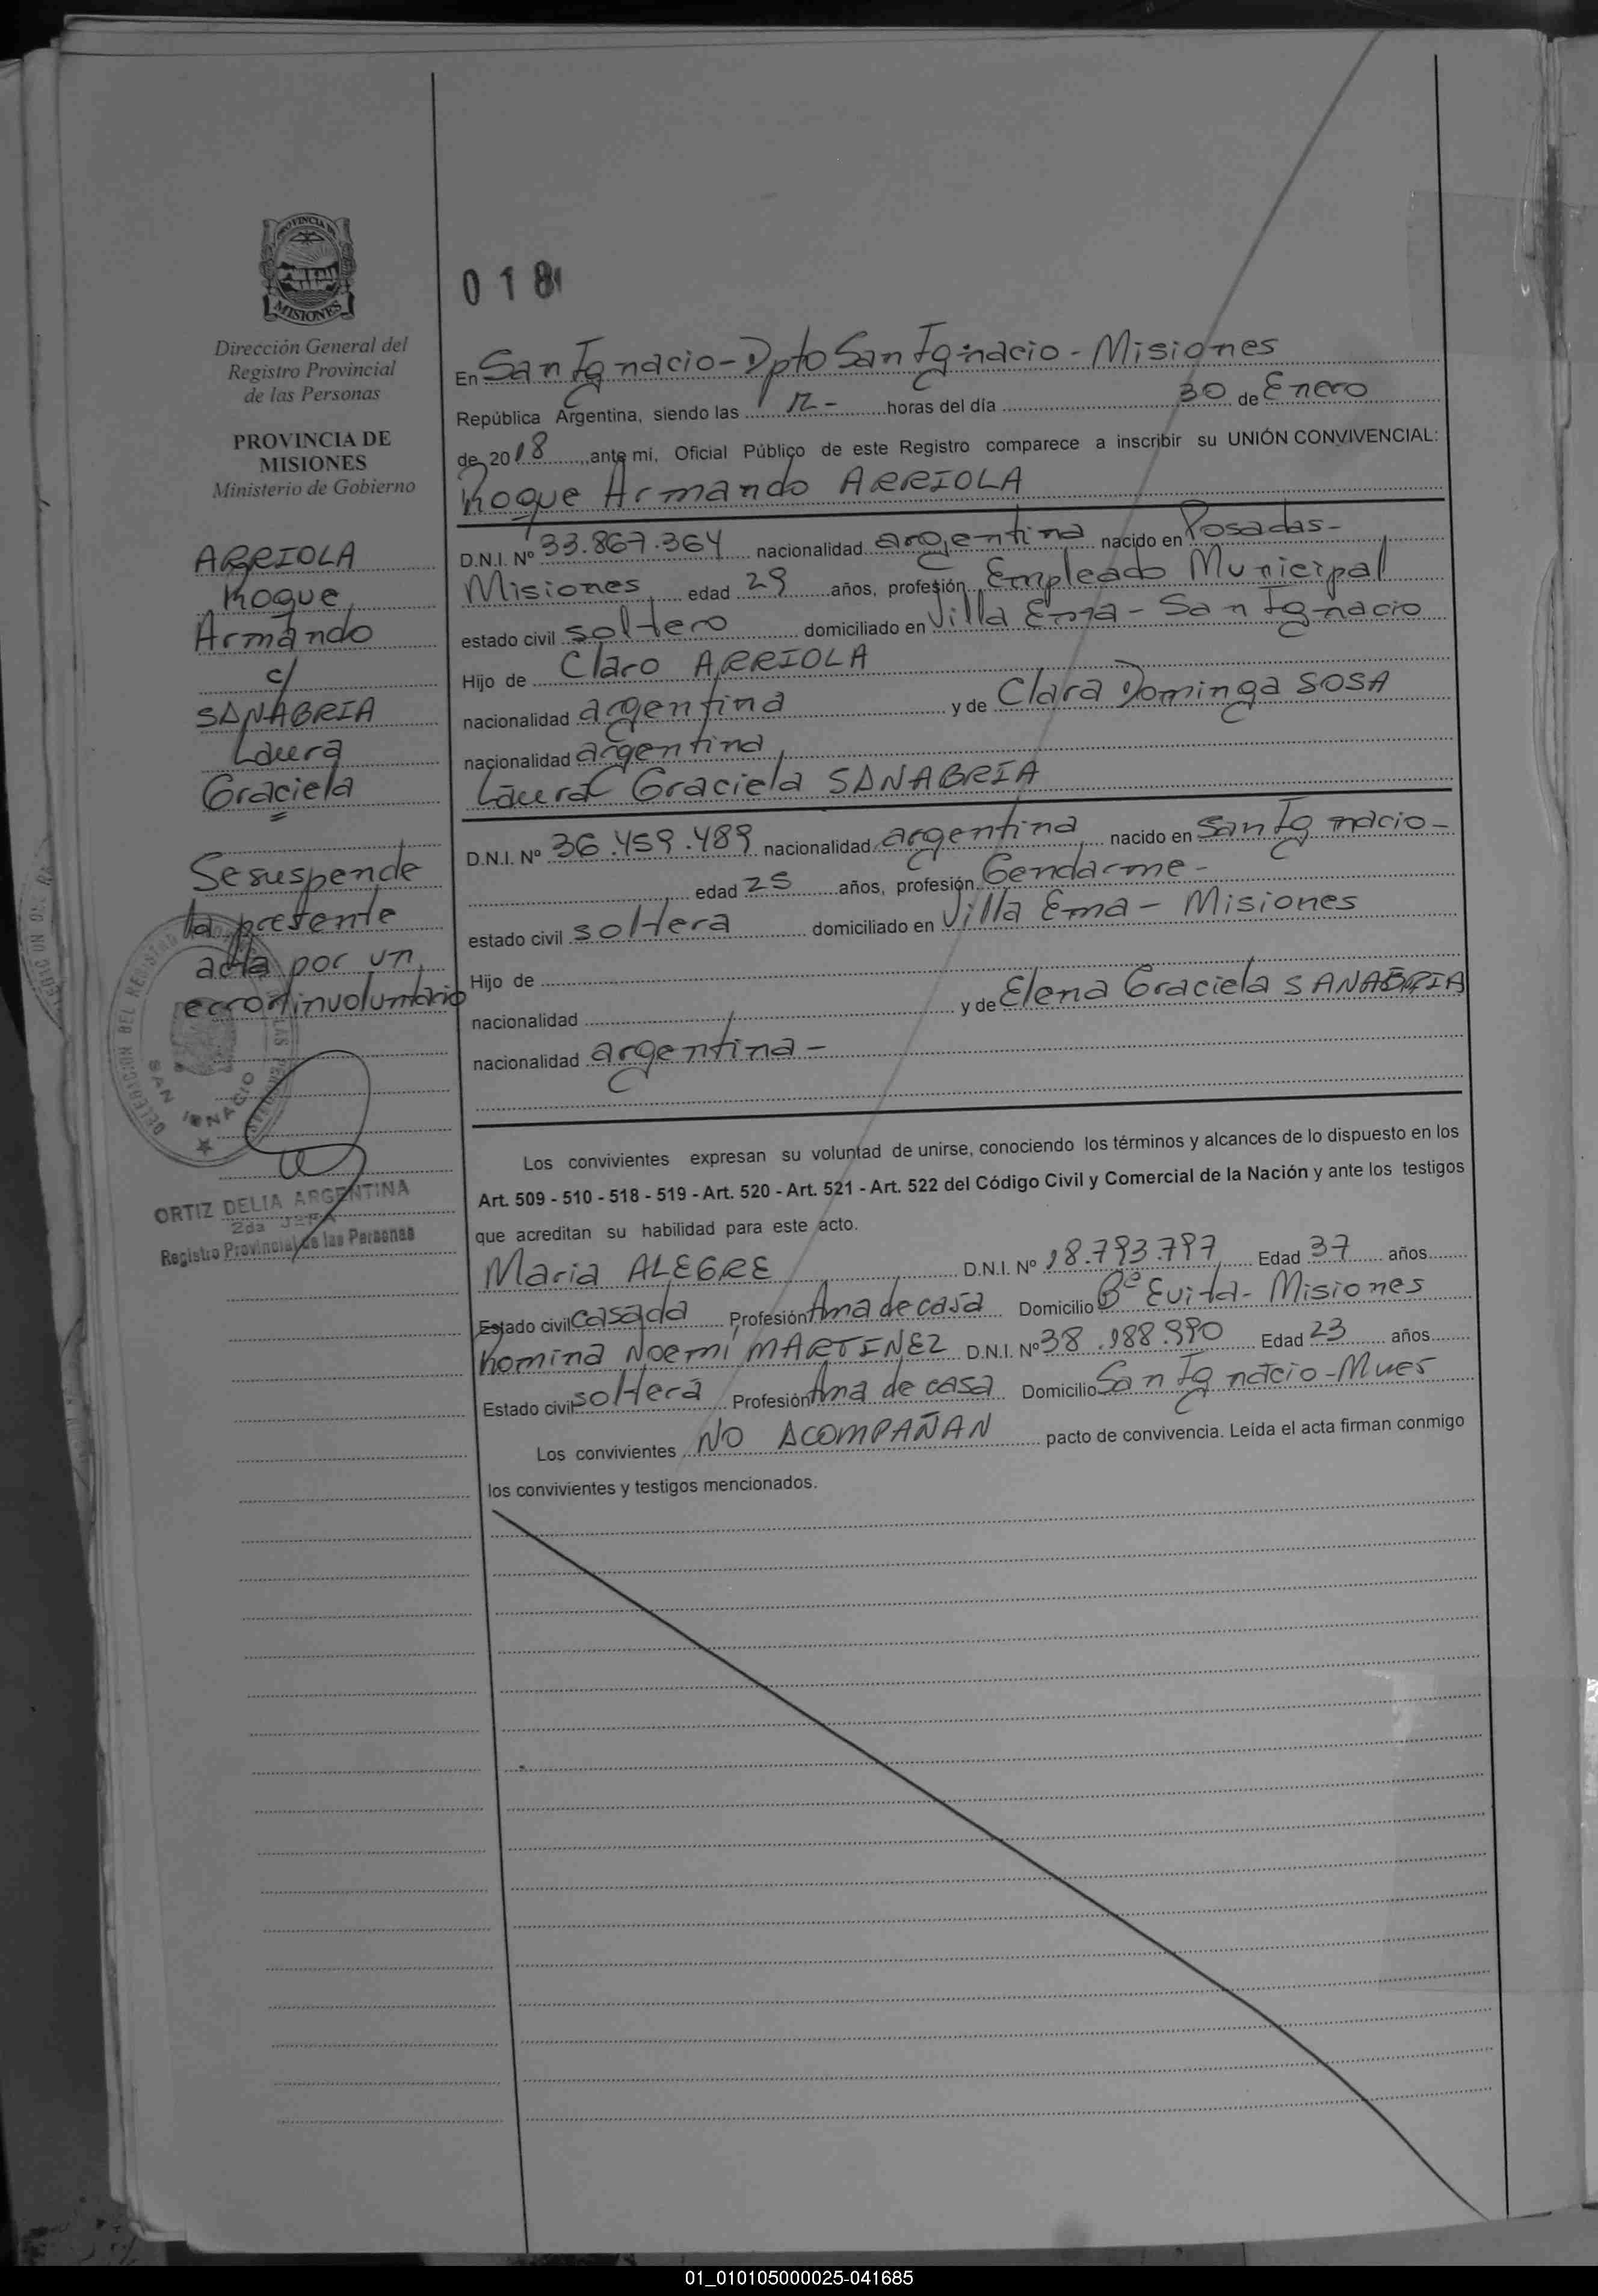 PROVINCIA DE
MISIONES
Dirección General del
Registro Provincial
de las Personas
PROVINCIA DE
MISIONES
Ministerio de Gobierno
ARRIOLA
Roque
Armando
c/
SANABRIA
Laura
Graciela
Se suspende
la presente
acta por un
error involuntario
DELEGACION DEL REGISTRO LAS PERSONAS
SAN IGNACIO
ORTIZ DELIA ARGENTINA
2da JEFA
Registro Provincial de las Personas
018
En San Ignacio - Dpto San Ignacio - Misiones
República Argentina, siendo las 12 - horas del día 30 de Enero
de 2018, ante mi, Oficial Público de este Registro comparece a inscribir su UNIÓN CONVIVENCIAL:
Roque Armando ARRIOLA
D.N.I. Nº 33.867.364 nacionalidad argentina nacido en Posadas -
Misiones edad 29 años, profesión Empleado Municipal
estado civil soltero domiciliado en Villa Ema - San Ignacio
Hijo de Claro ARRIOLA
nacionalidad argentina y de Clara Dominga SOSA
nacionalidad argentina
Laura Graciela SANABRIA
D.N.I. Nº 36.459.489 nacionalidad argentina nacido en San Ignacio -
edad 25 años, profesión Gendarme -
estado civil soltera domiciliado en Villa Ema - Misiones
Hijo de
nacionalidad y de Elena Graciela SANABRIA
nacionalidad argentina -
Los convivientes expresan su voluntad de unirse, conociendo los términos y alcances de lo dispuesto en los
Art. 509 - 510 - 518 - 519 - Art. 520 - Art. 521 - Art. 522 del Código Civil y Comercial de la Nación y ante los testigos
que acreditan su habilidad para este acto.
Maria ALEGRE D.N.I. Nº 18.793.797 Edad 37 años
Estado civil casada Profesión Ama de casa Domicilio Bº Evita - Misiones
Romina Noemí MARTINEZ D.N.I. Nº 38.188.990 Edad 23 años
Estado civil soltera Profesión Ama de casa Domicilio San Ignacio - Mnes
Los convivientes NO ACOMPAÑAN pacto de convivencia. Leída el acta firman conmigo
los convivientes y testigos mencionados.
01_010105000025-041685